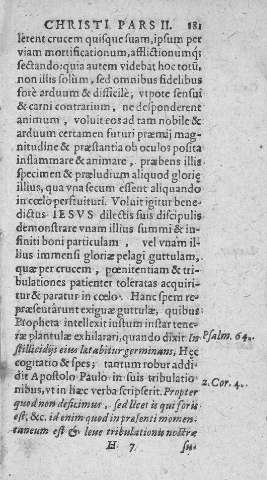 CHRISTI PARS II. 181
ferent crucem quisque suam, ipsum per
viam mortificationum, afflictionumq;
sectando: quia autem videbat hoc totū,
non illis solùm, sed omnibus fidelibus
forè arduum & difficile, vtpote sensui
& carni contrarium, ne desponderent
animum, voluit eos ad tam nobile &
arduum certamen futuri præmij mag-
nitudine & præstantia ob oculos posita
inflammare & animare, præbens illis
specimen & præludium aliquod glorię
illius, qua vna secum essent aliquando
in cœlo perfruituri. Voluit igitur bene-
dictus IESVS dilectis suis discipulis
demonstrare vnam illius summi & in-
finiti boni particulam, vel vnam il-
lius immensi gloriæ pelagi guttulam,
quæ per crucem, pœnitentiam & tri-
bulationes patienter toleratas acquiri-
tur & paratur in cœlo. Hanc spem re-
præsentârunt exiguæ guttulæ, quibus
Propheta intellexit iustum instar tene-
ræ plantulæ exhilarari, quando dixit. In Psalm. 64.
stillicidijs eius lætabitur germinans, Hęc
cogitatio & spes; tantum robur addi-
dit Apostolo Paulo in suis tribulatio- 2. Cor. 4.
nibus, vt in hæc verba scripserit. Propter
quod non deficimus, sed licet is qui foris
est; &c. id enim quod in præsenti momen-
taneum est & leue tribulationis nostræ
H 7